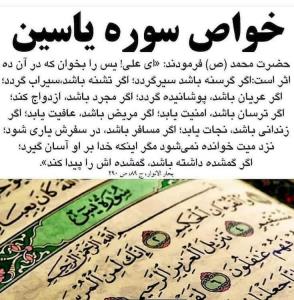 خواص سوره یاسین
حضرت محمد (ص) فرمودند: «ای علی! یس را بخوان که در آن ده
اثر است:اگر گرسنه باشد سیرگردد؛ اگر تشنه باشد،سیراب گردد؛
اگر عریان باشد، پوشانیده گردد؛ اگر مجرد باشد، ازدواج کند؛
اگر ترسان باشد، امنیت یابد؛ اگر مریض باشد، عافیت یابد؛ اگر
زندانی باشد، نجات یابد؛ اگر مسافر باشد، در سفرش یاری شود؛
نزد میت خوانده نمی‌شود مگر اینکه خدا بر او آسان گیرد؛
اگر گمشده داشته باشد، گمشده اش را پیدا کند».
بحار الانوار، ج ۸۹، ص ۲۹۰